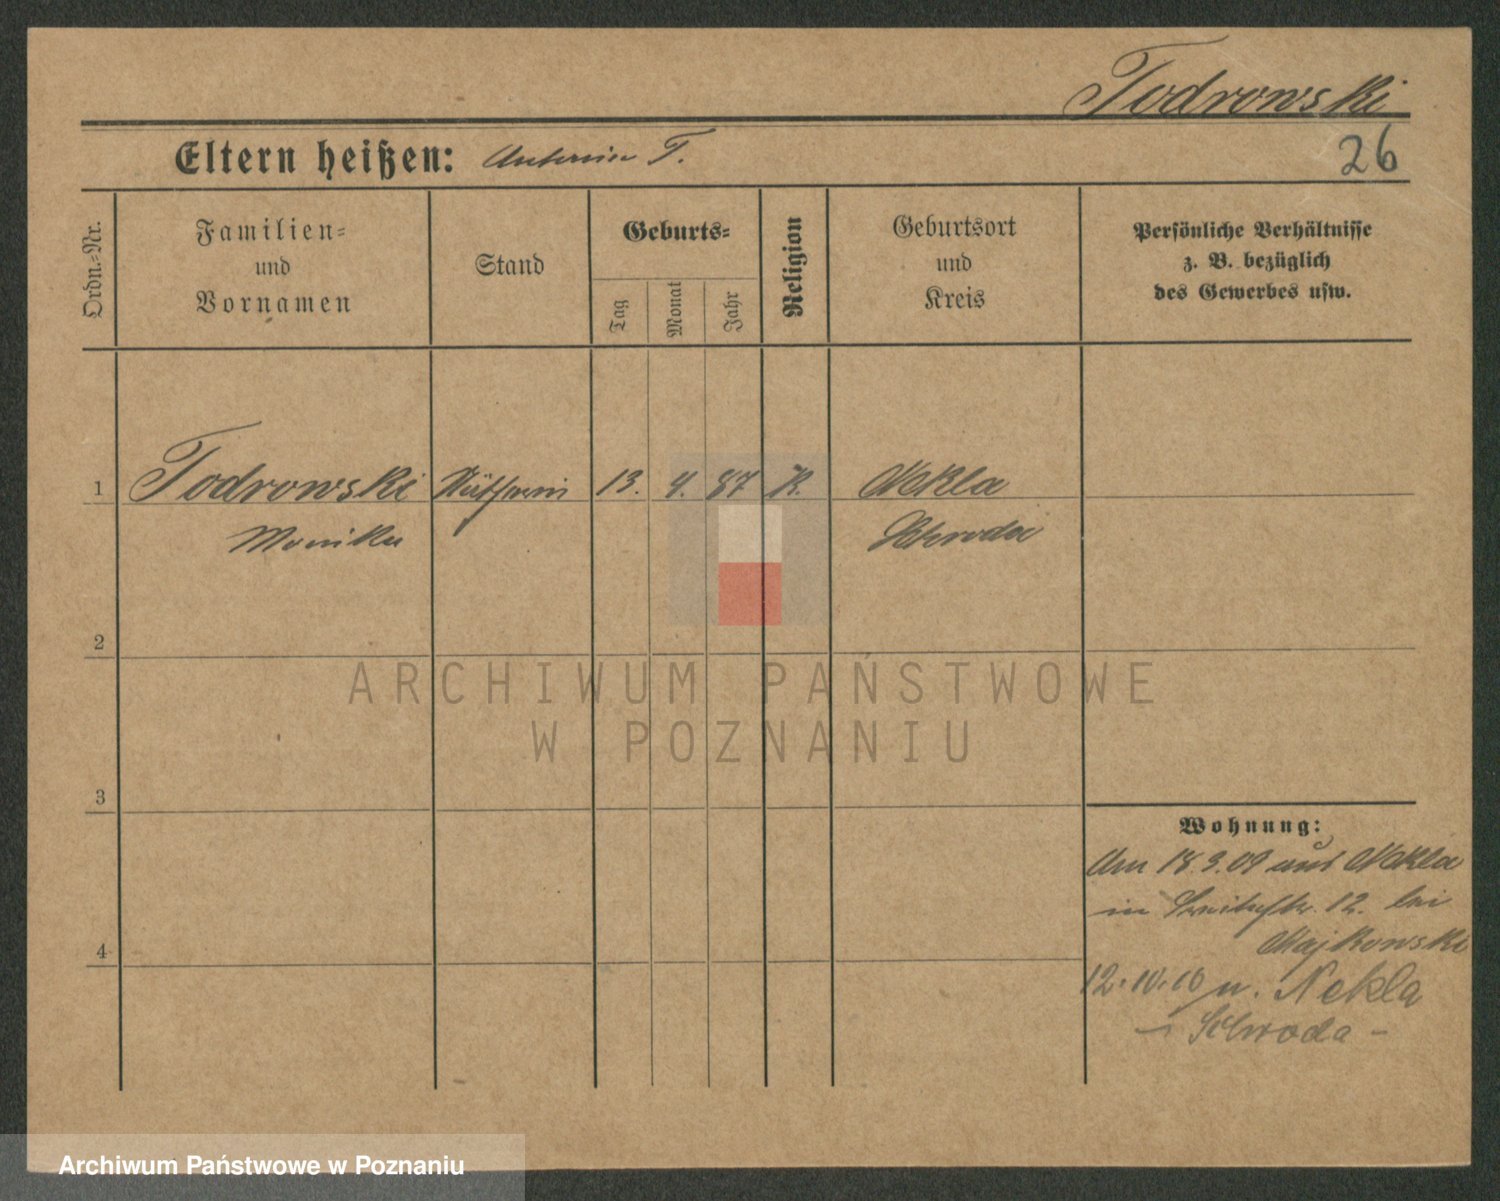 Todrowski
Eltern heißen: Antonin T.
26
Ordn.-Nr.
Familien-
und
Vornamen
Stand
Geburts-
Tag
Monat
Jahr
Religion
Geburtsort
und
Kreis
Persönliche Verhältnisse
z. B. bezüglich
des Gewerbes usw.
1 Todrowski 13. 4. 87 K. Nekla
Monika Schroda
2
3
4
Wohnung:
Am 18.3.09 aus Nekla
in 12. bei
Majkowski
12.10.10 n. Nekla
- Schroda -
ARCHIWUM PAŃSTWOWE
W POZNANIU
Archiwum Państwowe w Poznaniu